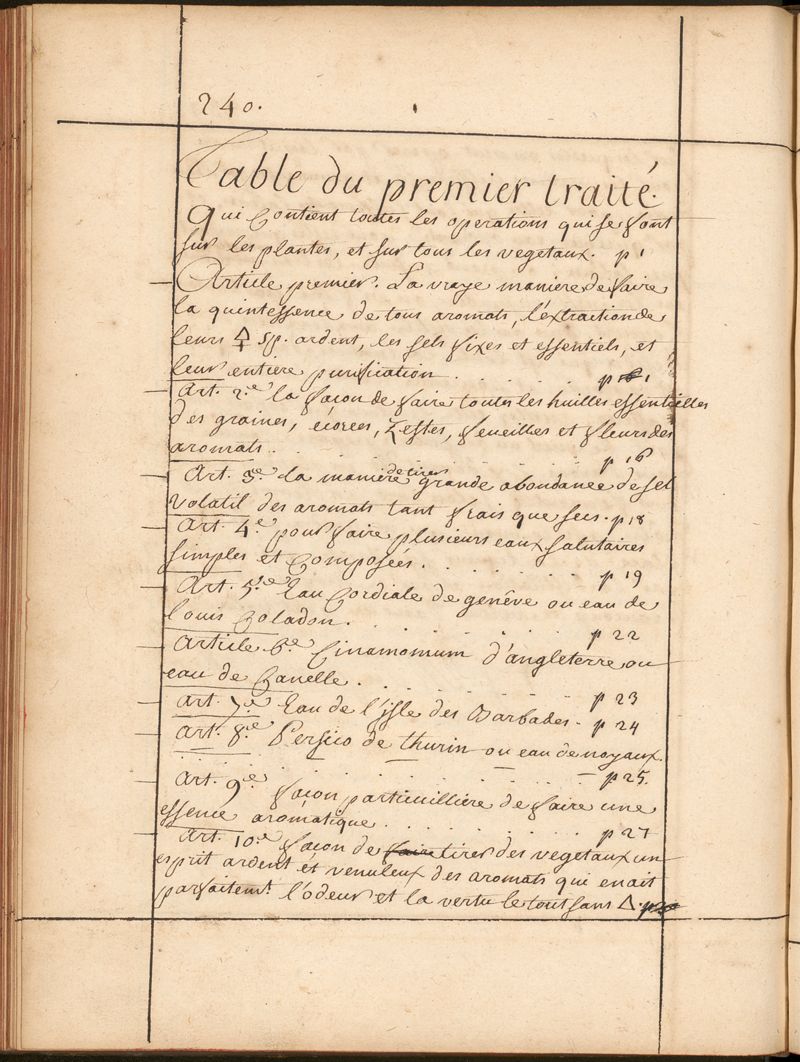 240.
Table du premier traité.
qui Contient toutes les operations qui se font
sur les plantes, et sur tous les vegetaux. p 1
Article premier. La vraye maniere de faire
la quintessence de tous aromats, l'extraction de
leurs 🜍 sp. ardent, les sels fixes et essentiels, et
leur entiere purification . . . . . . p 1
Art. 2.e la façon de faire toutes les huilles essentielles
des graines, écorces, Zestes, feueilles et fleurs des
aromats. . . . . . . . . p 16
Art. 3.e la maniere de tirer grande abondance de sel
volatil des aromats tant frais que secs. p 18
Art. 4.e pour faire plusieurs eaux salutaires
simples et Composées. . . . . . . p 19
Art. 5.e Eau Cordiale de genêve ou eau de
Louis Coladon. . . . . . . . p 22
Article 6.e Cinamomum d'angleterre ou
eau de Canelle. . . . . . . . p 23
Art. 7.e Eau de l'isle des Barbades - p 24
Art. 8.e Persico de thurin ou eau de noyaux.
. . . . . . . . — p 25.
Art. 9.e façon particuilliere de faire une
essence arómatique. . . . . . . p 27
Art. 10.e façon de faire tirer des vegetaux un
esprit ardent et venuleux des aromats qui en ait
parfaitemt. l'odeur et la vertu le tout sans △.